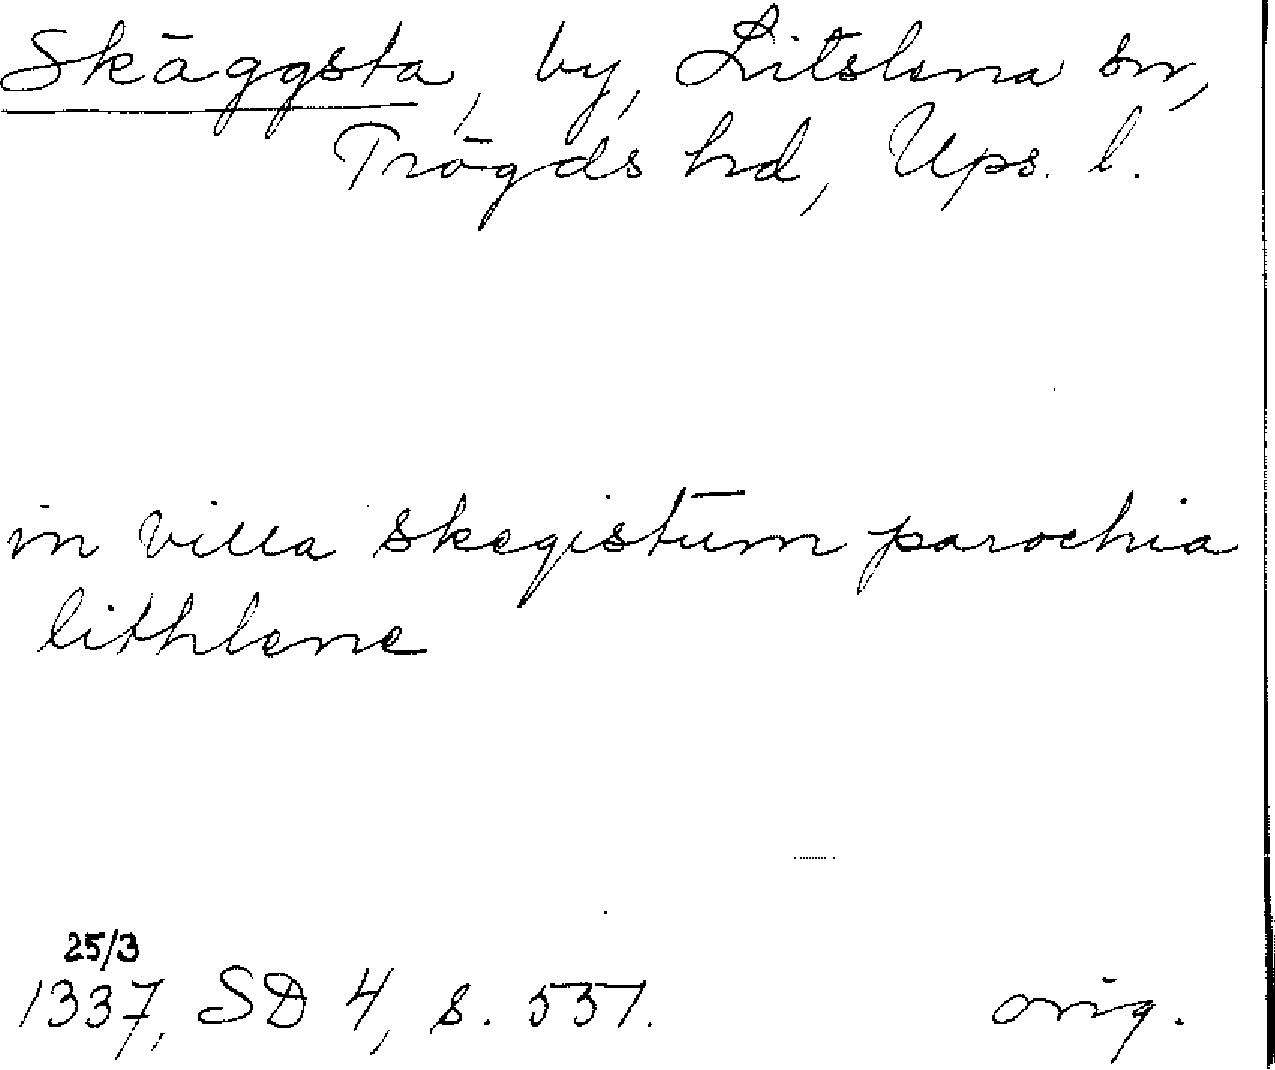 Skäggsta, by, Litslena sn,
Trögds hd, Ups. l.
in villa skegistum parochia
lithlene
25/3
1337, SD 4, s. 537. orig.